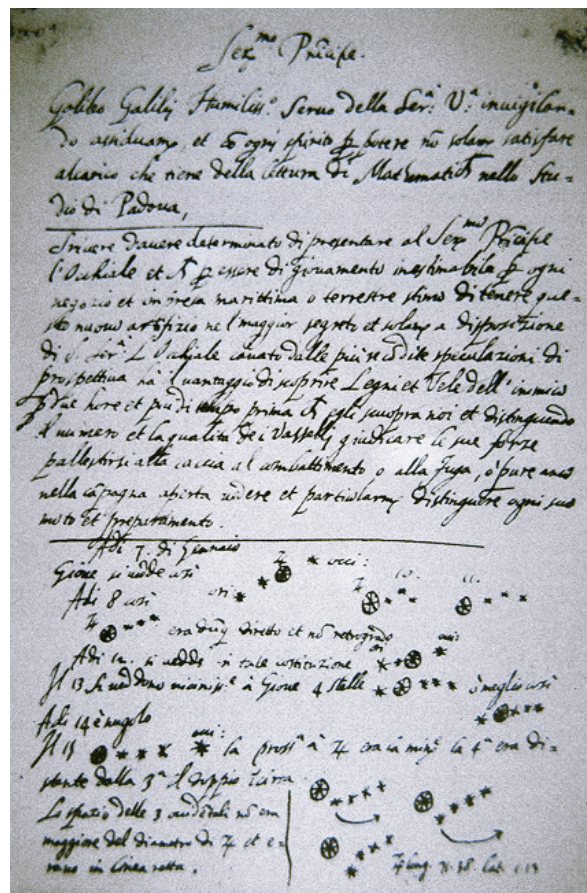 Ser.mo Prīcipe.
Galileo Galilej Humiliss.o Servo della Ser.a V.a invigilan-
do assiduam.e, et cō ogni spirito p potere nō solam.e satisfare
alcarico che tiene della lettura di Mathematich nello Stu-
dio di Padova,
Scrivere d'avere determinato di presentare al Ser.mo Prīcipe
l'Ochiale et p essere di giovamento inestimabile p ogni
negozio et impresa marittima o terrestre stimo di tenere que-
sto nuovo artifizio nel maggior segreto et solam.e a disposizione
di S. Ser.a L'Ochiale cavato dalle più recōdite speculazioni di
prospettiva ha il vantaggio di scoprire Legni et Vele dell'inimico
p due hore et più di tempo prima ch egli scuopra noi et distinguendo
il numero et la qualità de i Vasselli giudicare le sue forze
pallestirsi alla caccia al combattimento o alla fuga, ò pure anco
nella cāpagna aperta vedere et particolarm.e distinguere ogni suo
moto et preparamento.
Adi 7. di Gennaio
Gione si vedde così occi:
Adi 8 così ori 10. 11.
era dūq diretto et nō retrogrado
Adi 12. si vedde in tale costituzione
Il 13 si veddono vicinis.e à Giove 4 stelle ò meglio così
Adi 14 è nugolo
Il 15 occi: la pross.a à ♃ era la min.e la 4.a era di-
stante dalla 3.a il doppio circa
Lo spazio delle 3 occidētali nō era
maggiore del diametro di ♃ et e-
rano in linea retta.
♃ long. 71.38. Lat. 1.13